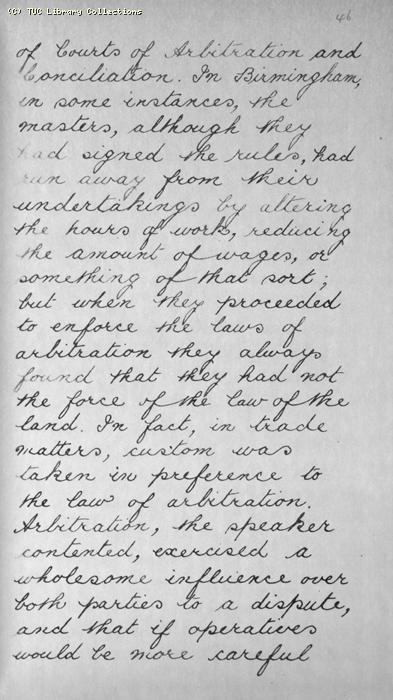 (C) TUC Library Collections
46
of Courts of Arbitration and
Conciliation. In Birmingham,
in some instances, the
masters, although they
had signed the rules, had
run away from their
undertakings by altering
the hours of work, reducing
the amount of wages, or
something of that sort;
but when they proceeded
to enforce the laws of
arbitration they always
found that they had not
the force of the law of the
land. In fact, in trade
matters, custom was
taken in preference to
the law of arbitration.
Arbitration, the speaker
contented, exercised a
wholesome influence over
both parties to a dispute,
and that if operatives
would be more careful